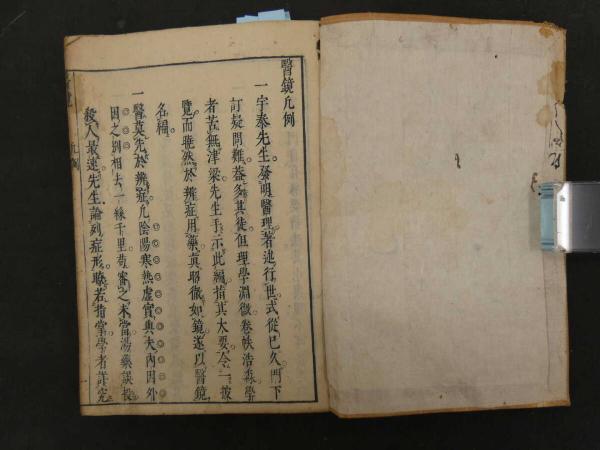 醫鏡凡例
一宇泰先生發明醫理著述行世式從已久門下
訂疑問難葢多其徒但理學淵微卷帙浩森學
者苦無津梁先生手示此編指其大要令一披
覽而曉然於辨症用藥真昭徹如鏡遂以醫鏡
名編
一醫莫先於辨症凡陰陽寒熱虛實與夫內因外
因之別相去一線千里苟審之未當湯藥誤投
殺人最速先生論列症形瞭若指掌學者詳究
凡例